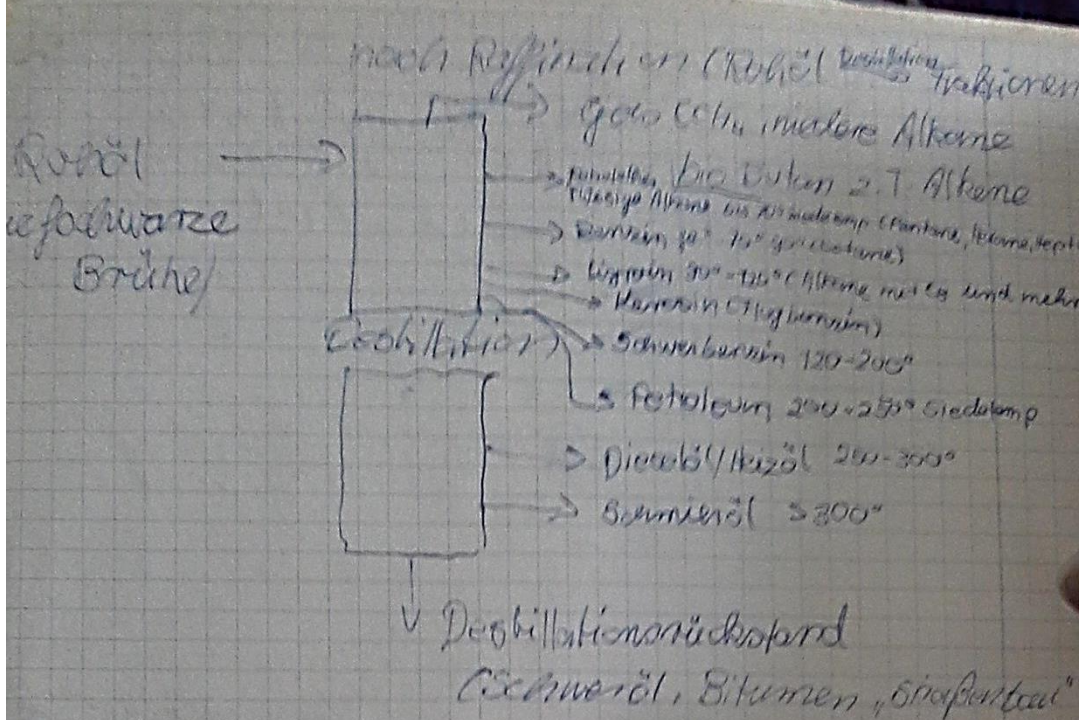 noch Raffination (Rohöl Destillation Fraktionen
Gase CH₄, niedere Alkane
Rohöl
bis Butan z.T. Alkene
tiefschwarze
flüssige Alkane bis Siedetemp (Pentane, Hexane, Hept
Brühe)
Benzin
Ligroin 90°-120° (Alkane mit C₈ und mehr
Kerosin (Flugbenzin)
(Destillation)
Schwerbenzin 120-200°
Petroleum, 200-250° Siedetemp
Dieselöl/Heizöl 250-300°
Schmieröl >300°
Destillationsrückstand
(Schweröl, Bitumen „Straßenteer"